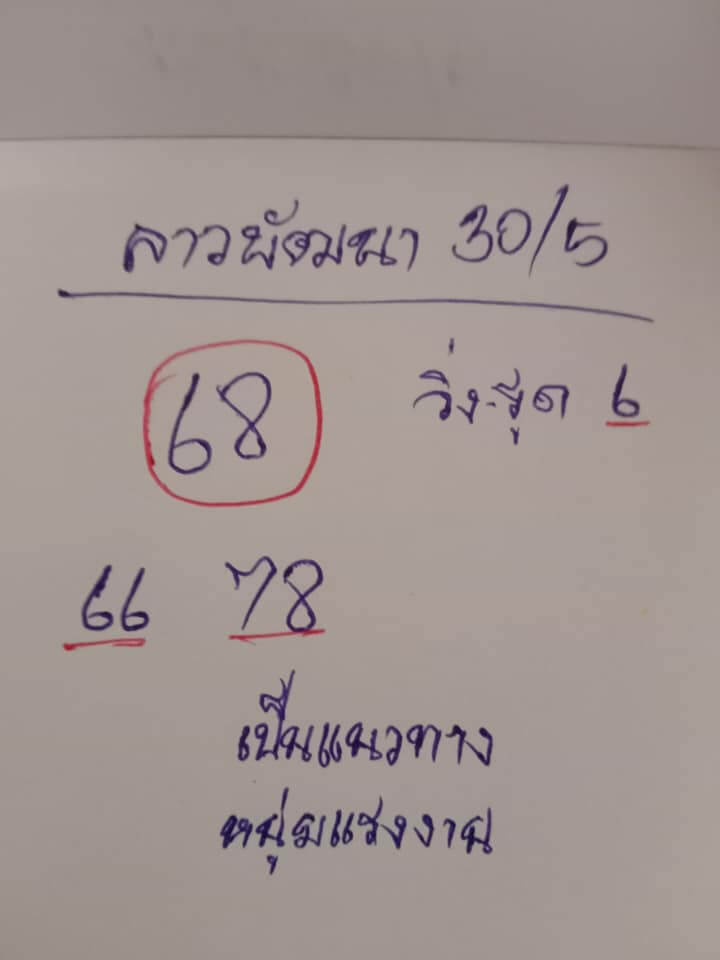 ลาวพัฒนา 30/5
68 วิ่ง-รูด 6
66 78
เป็นแนวทาง
หนุ่มแรงงาน